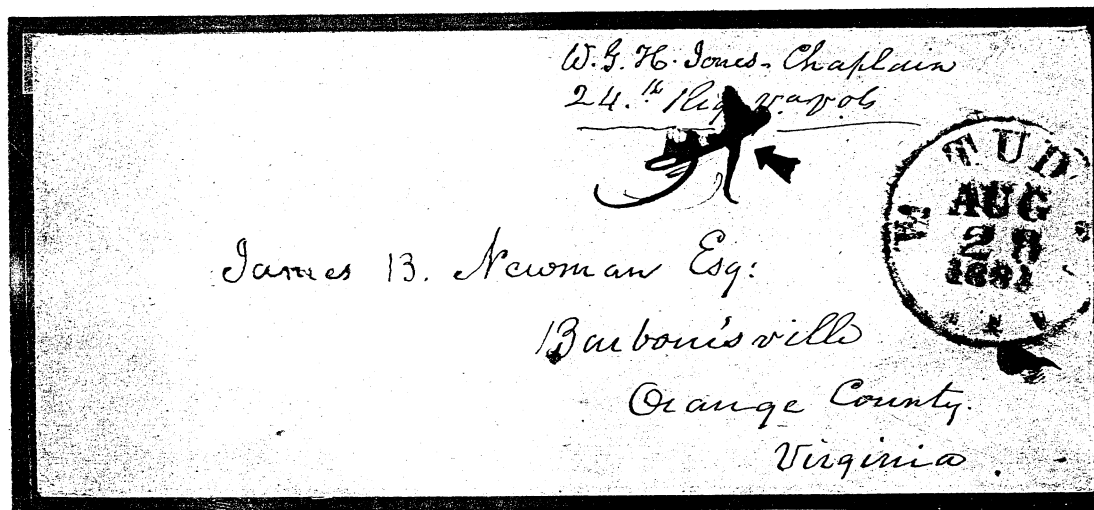 W. G. H. Jones - Chaplain
24.th Reg. Va Vols
TUD
AUG
28
James B. Newman Esq:
Barboursville
Orange County.
Virginia